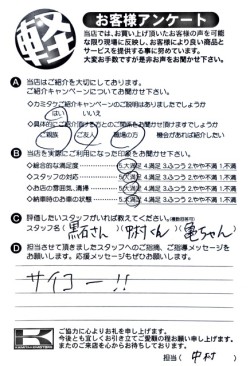 軽
お客様アンケート
当店では、お買い上げ頂いたお客様の声を可能
な限り現場に反映し、お客様により良い商品と
サービスを提供する事に努めています。
大変お手数ですが是非お声をお聞かせ下さい。
A 当店はご紹介を大切にしております。
ご紹介キャンペーンについてお聞かせ下さい。
◇カミタケご紹介キャンペーンのご説明はありましたでしょうか
はい いいえ
ご親族 ご友人 職場の方 機会があれば紹介したい
B 当店を実際にご利用になった印象をお聞かせ下さい。
◇総合的な満足度 5.大満足 4.満足 3.ふつう 2.やや不満 1.不満
◇スタッフの対応 5.大満足 4.満足 3.ふつう 2.やや不満 1.不満
◇お店の雰囲気、清掃 5.大満足 4.満足 3.ふつう 2.やや不満 1.不満
◇納車時のお車の状態 5.大満足 4.満足 3.ふつう 2.やや不満 1.不満
C 評価したいスタッフがいれば教えてください。(複数回答可)
スタッフ名(黒石さん)(中村くん)(亀ちゃん)
D 担当させて頂きましたスタッフへのご指摘、ご指導メッセージを
お願いします。応援メッセージもぜひお願いします。
サイコー!!
ご協力に心よりお礼を申し上げます。
今後とも宜しくお引き立てご愛顧の程お願い申し上げます。
またのご来店を心からお待ちしております。
担当( 中村 )